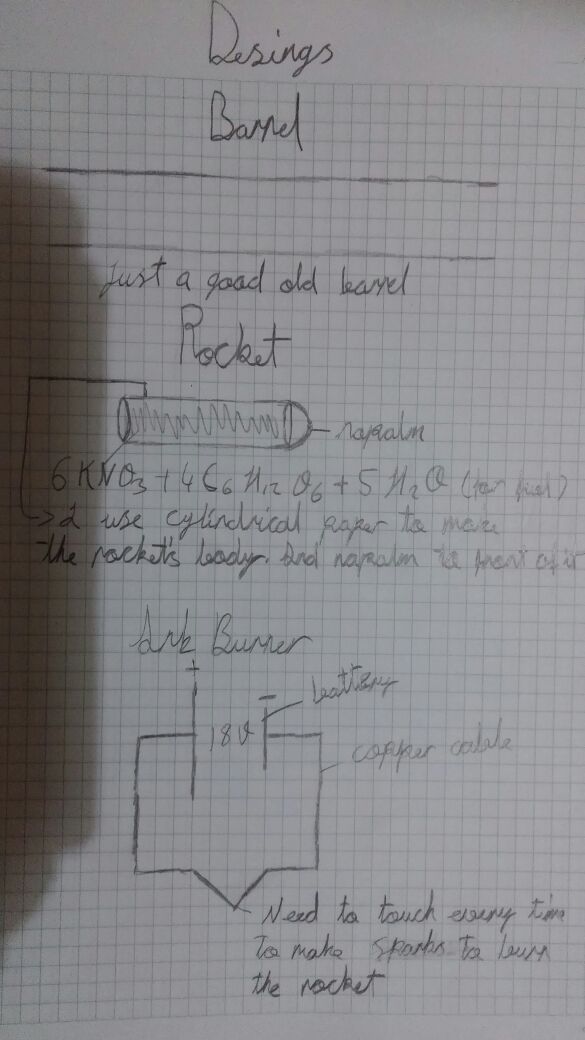 Desings
Barrel
Just a good old barrel
Rocket
napalm
6 KNO3 + 4 C6 H12 O6 + 5 H2O (for fuel)
→ I use cylindrical paper to make
the rocket's body. And napalm is front of it
Ark Burner
+
-
battery
18V
copper cable
Need to touch every time
To make sparks to burn
the rocket